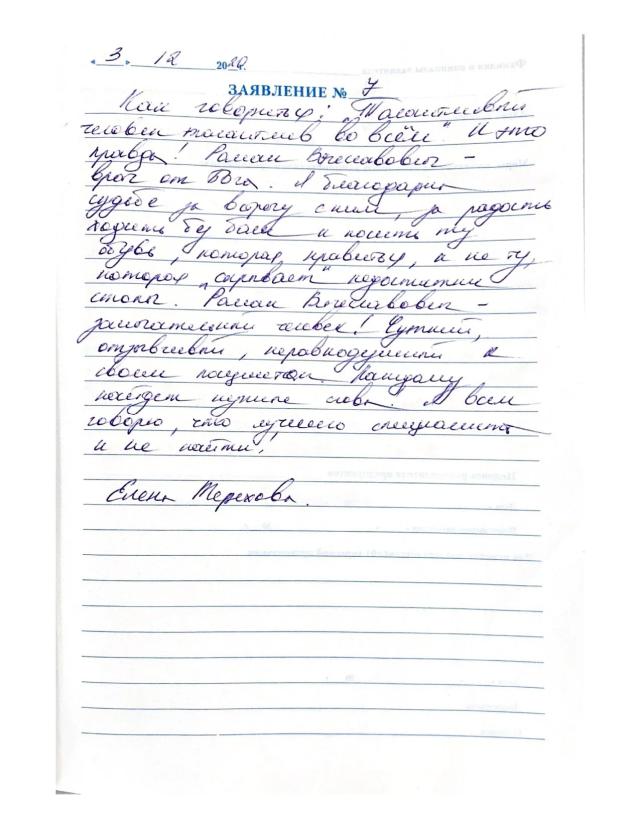 « 3 » 12 2020г.
ЗАЯВЛЕНИЕ № 7
Как говориться: „Талантливый
человек талантлив во всём". И это
правда! Роман Вячеславович –
врач от Бога. Я благодарна
судьбе за встречу с ним, за радость
ходить без боли и носить ту
обувь, которая нравиться, а не ту,
которая „скрывает" недостатки
стопы. Роман Вячеславович –
замечательный человек! Чуткий,
отзывчивый, неравнодушный к
своим пациентам. Каждому
найдет нужные слова. Я всем
говорю, что лучшего специалиста
и не найти!
Елена Терехова.